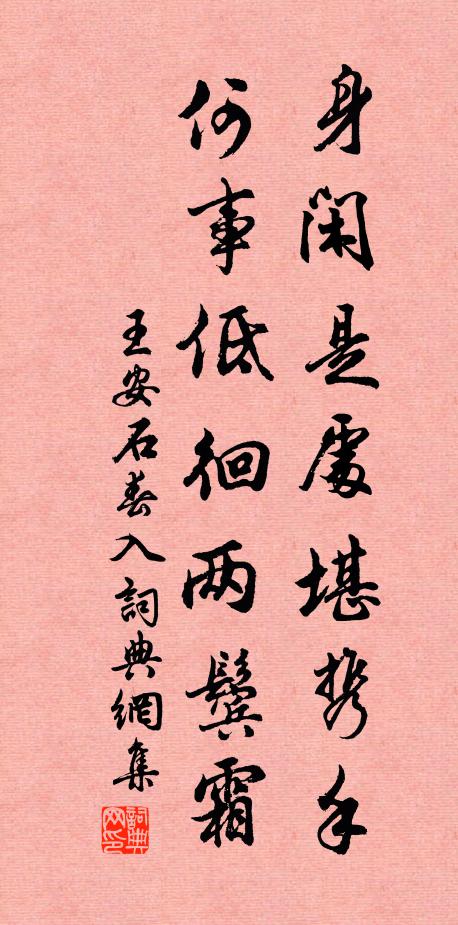 身闲是處堪携手
何事低徊两鬓霜
王安石春入詞典網集
詞典网印